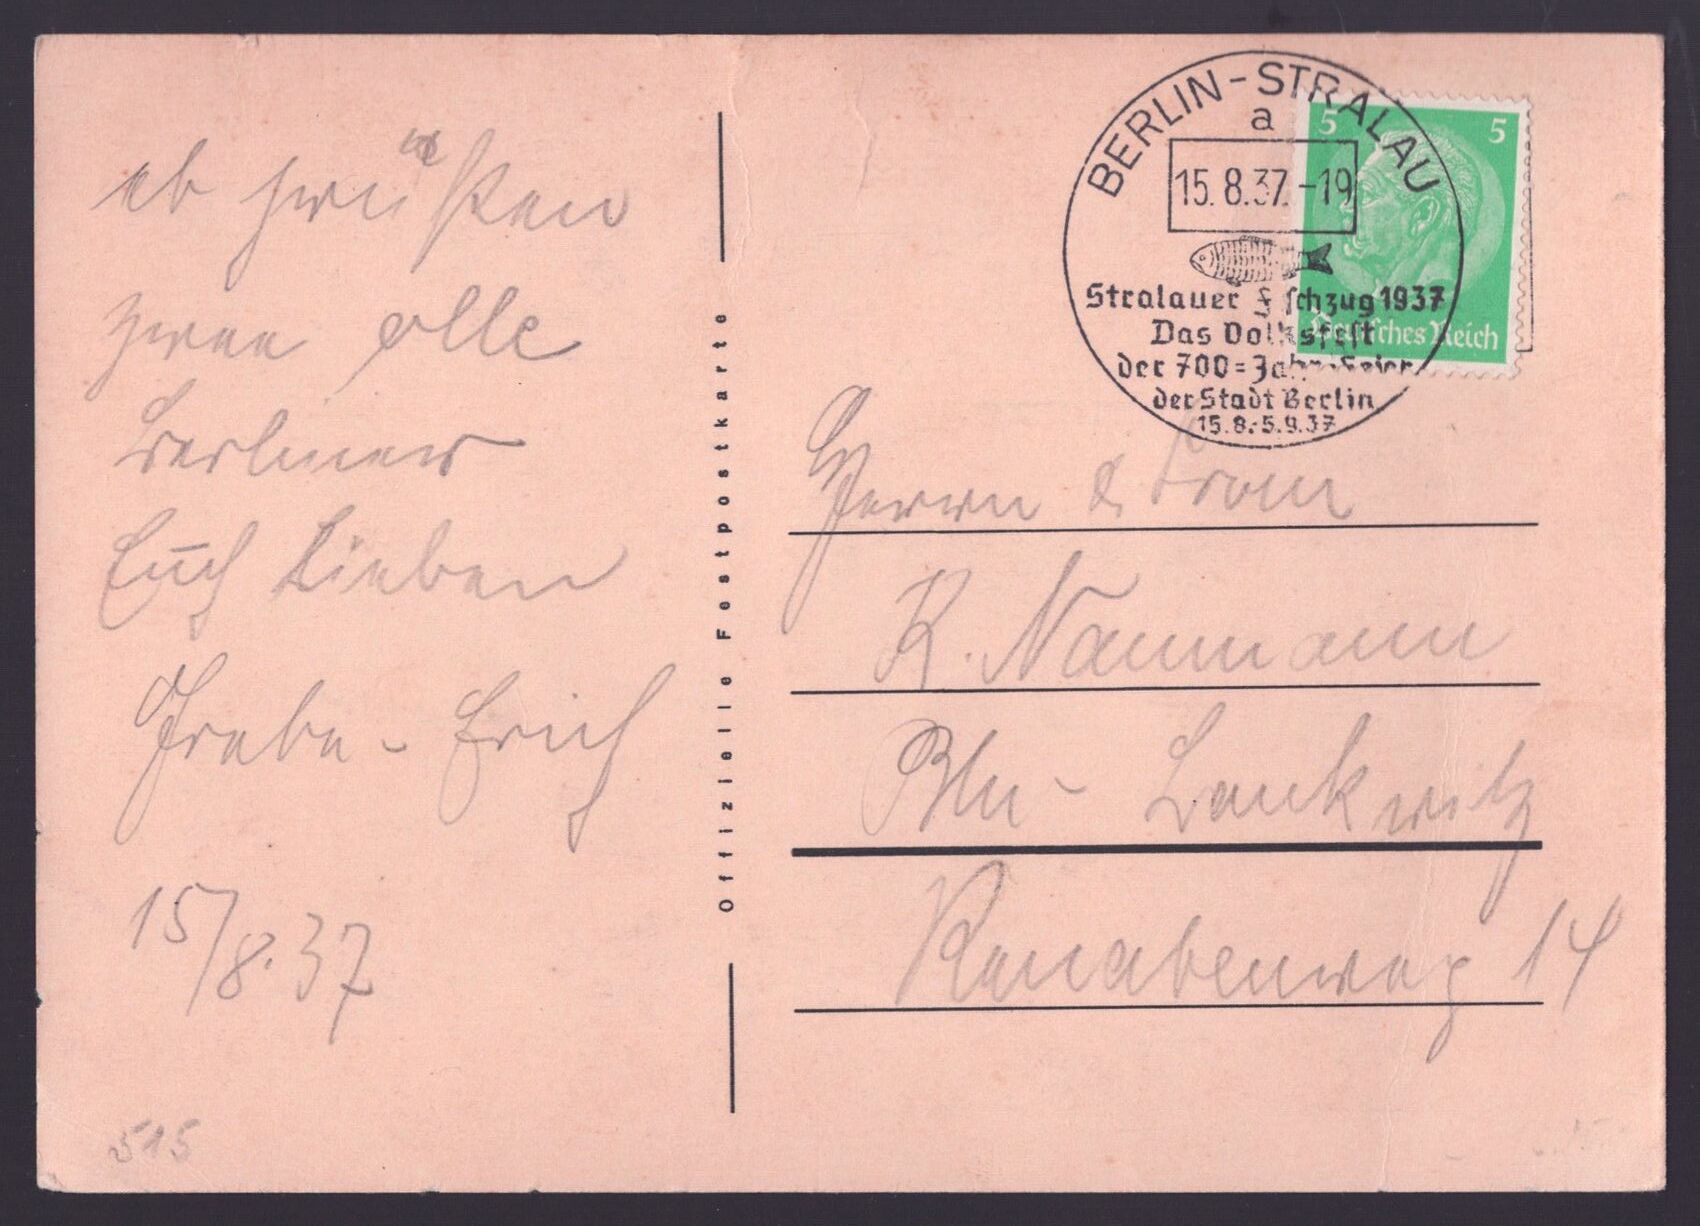 zwee olle
Berliner
Euch Lieben
Erich
15/8.37
515
Offizielle Festpostkarte
BERLIN-STRALAU
a
15.8.37.-19
Stralauer Fischzug 1937
Das Volksfest
der 700=Jahr-Feier
der Stadt Berlin
15.8.-5.9.37
5 5
Deutsches Reich
Herrn & Frau
K. Naumann
Bln - Lankwitz
14